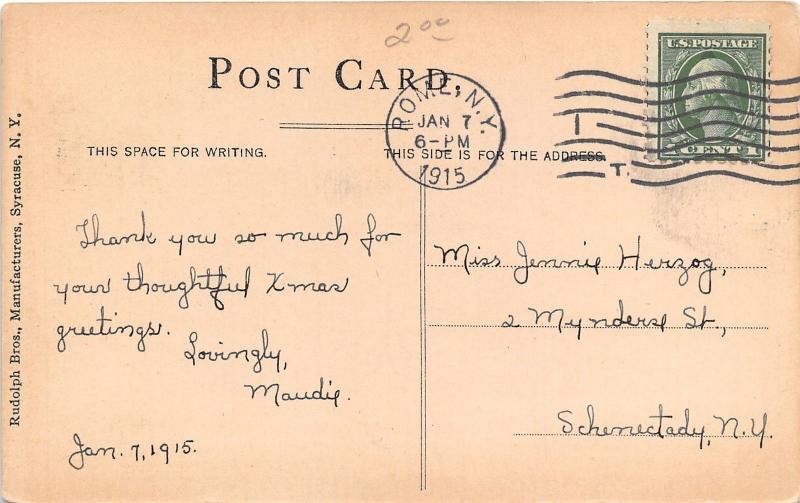 2.00
POST CARD.
THIS SPACE FOR WRITING.
THIS SIDE IS FOR THE ADDRESS.
ROME, N.Y.
JAN 7
6-PM
1915
1
T.
U.S. POSTAGE
CENT
Thank you so much for
your thoughtful Xmas
greetings.
Lovingly,
Maudie.
Jan. 7, 1915.
Miss Jennie Herzog,
2 Mynderse St.,
Schenectady, N.Y.
Rudolph Bros., Manufacturers, Syracuse, N. Y.